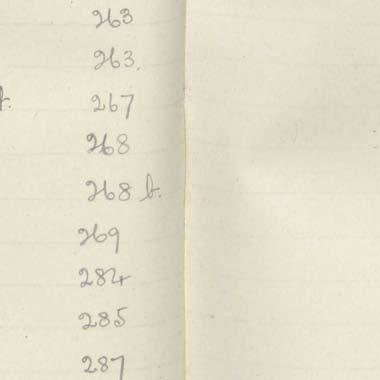 263
263.
267
268
268 b.
269
284
285
287